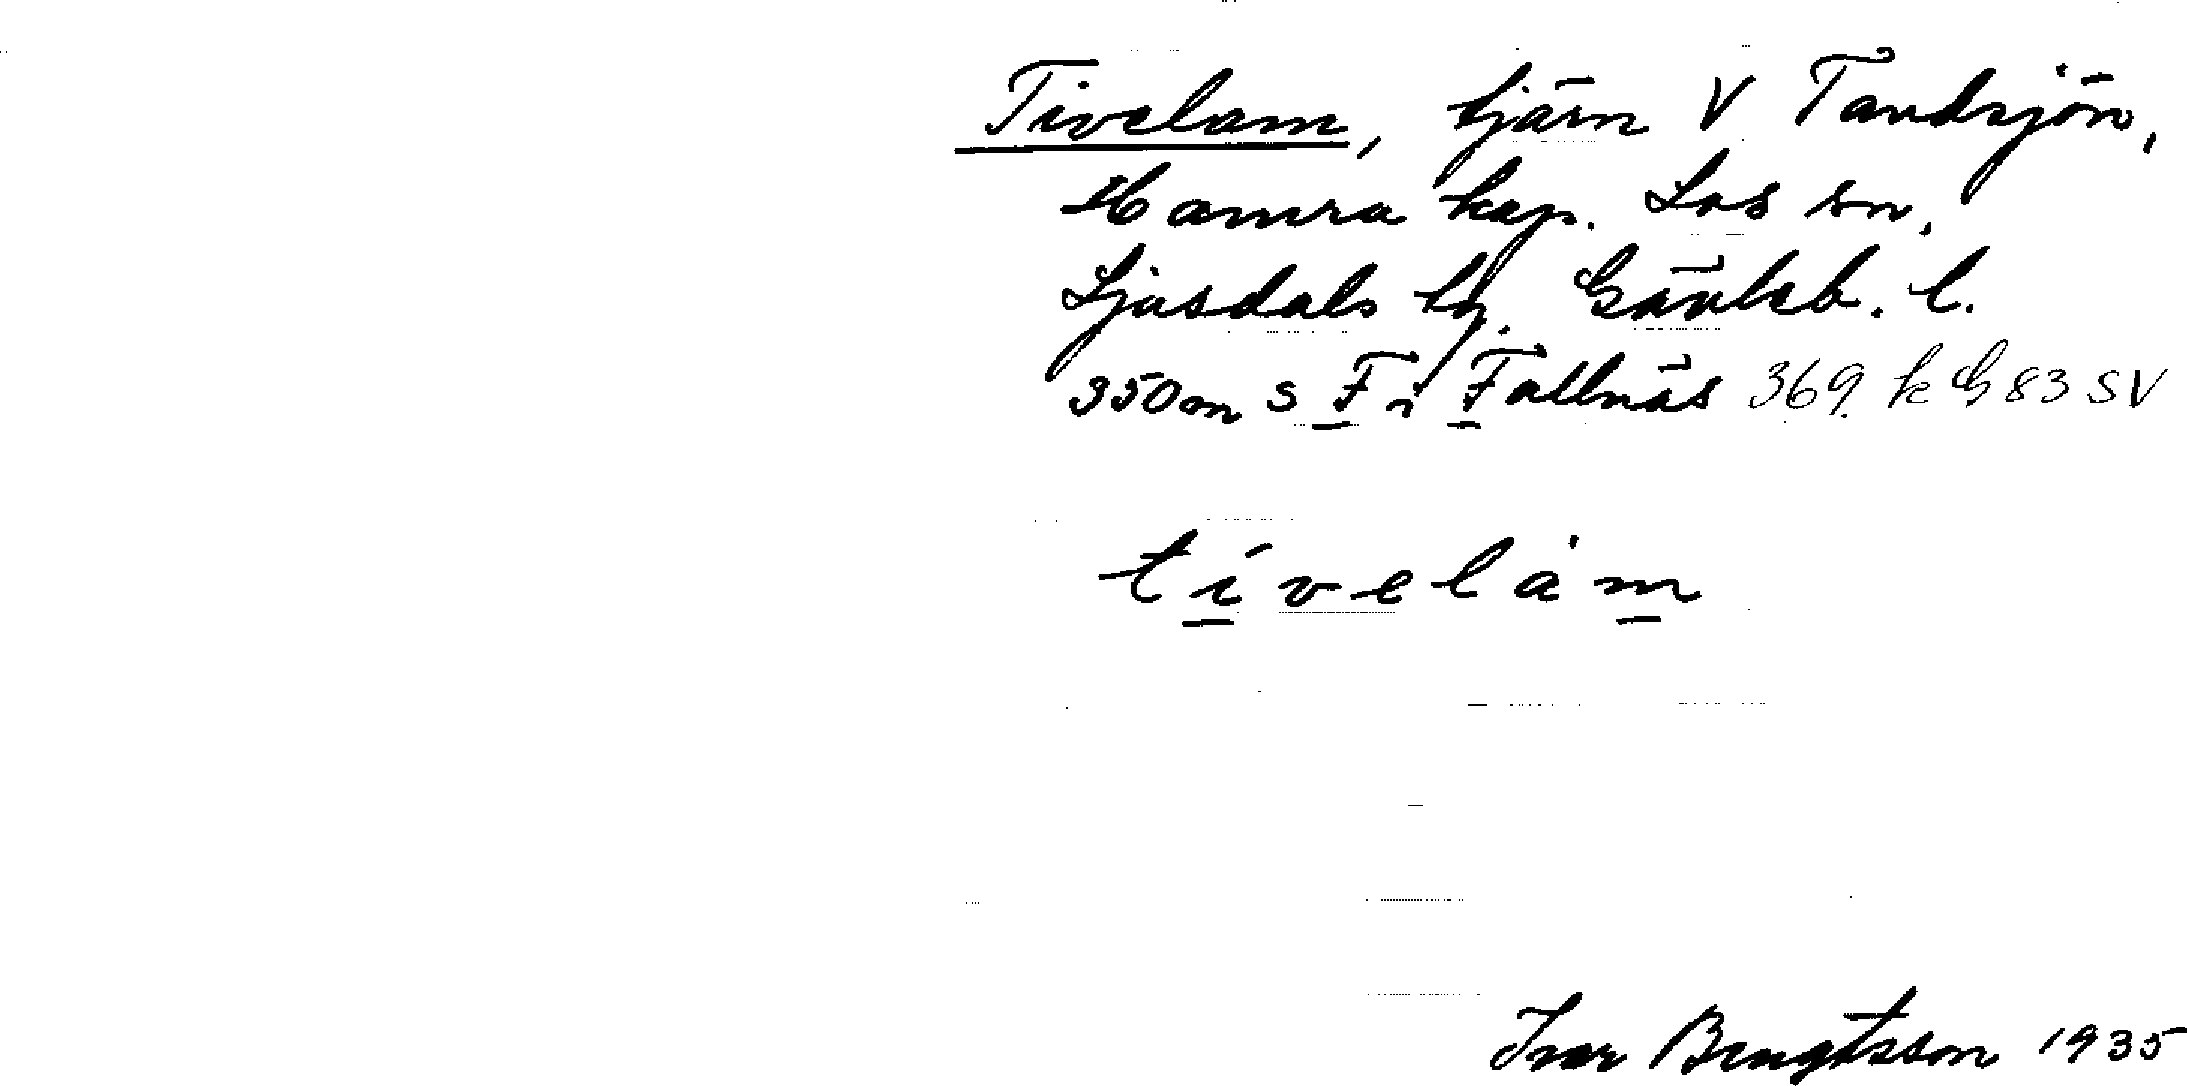 Tivelam, tjärn V Tandsjön,
Hamra kap. Los sn,
Ljusdals tg. Gävleb. l.
350m S F i Fallnäs 369. k G 83 SV
tívelàm
Ivar Bengtsson 1935